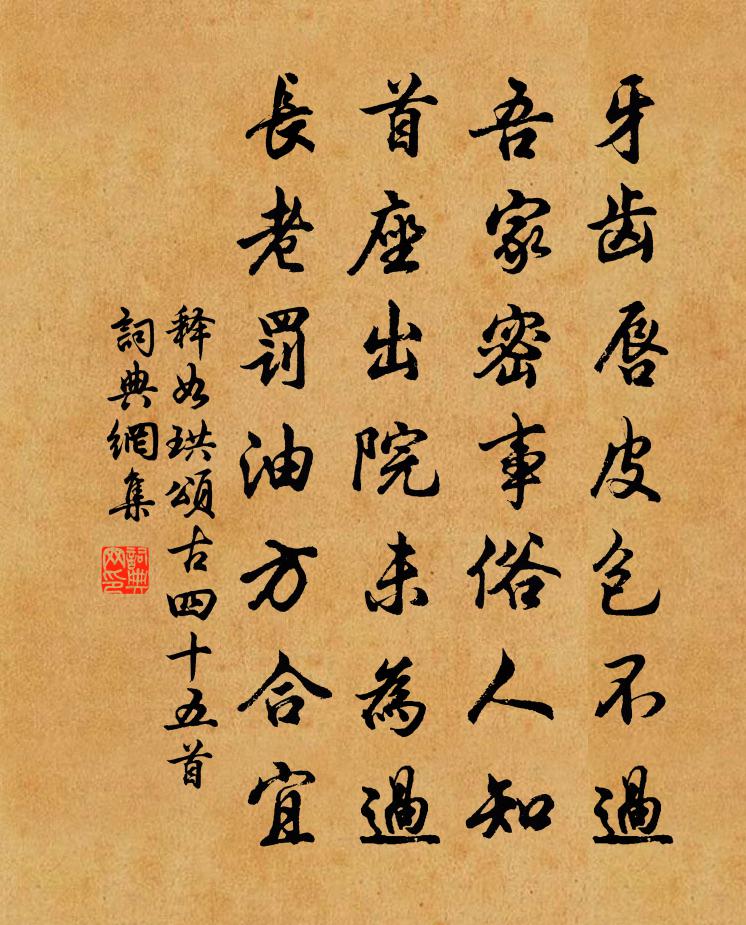 牙齿唇皮包不過
吾家密事俗人知
首座出院未為過
長老罰油方合宜
释如珙頌古四十五首
詞典網集
詞典網印